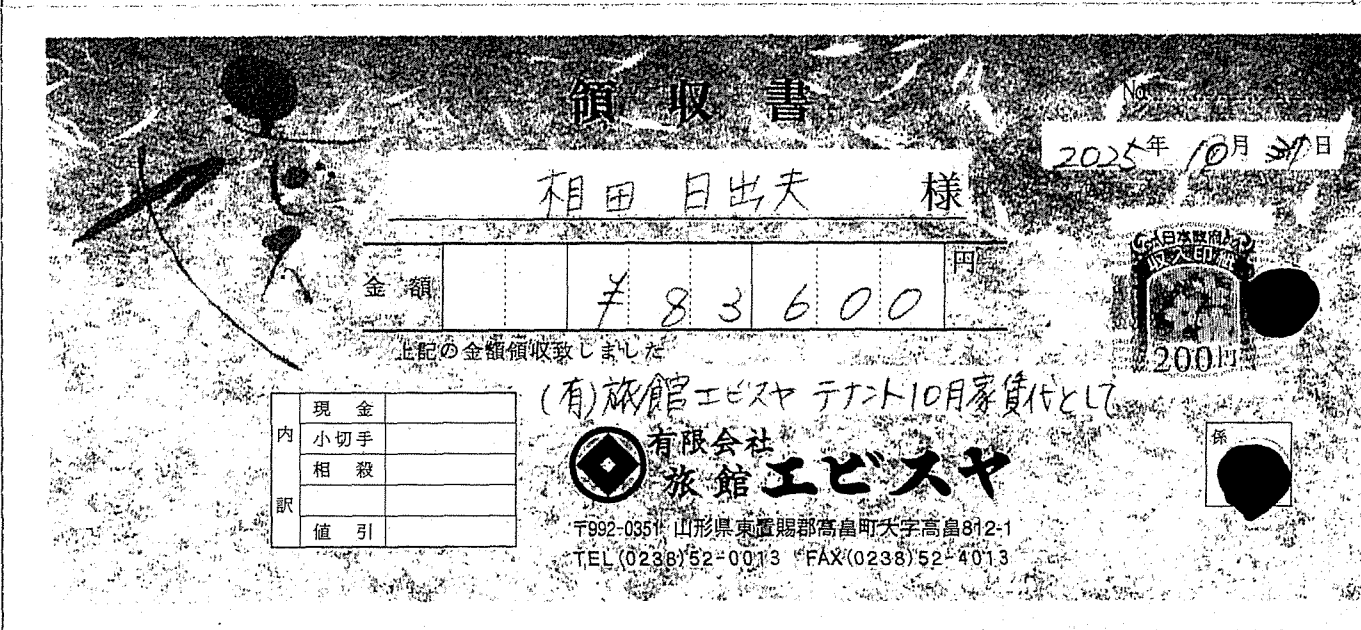 領収書
No.
2025年 10月 31日
相田 日出夫 様
金額 ¥83600円
上記の金額領収致しました
日本政府
収入印紙
200円
(有)旅館エビスヤ テナント10月家賃代として
内訳
現金
小切手
相殺
値引
係
有限会社
旅館 エビスヤ
〒992-0351 山形県東置賜郡高畠町大字高畠812-1
TEL(0238)52-0013 FAX(0238)52-4013